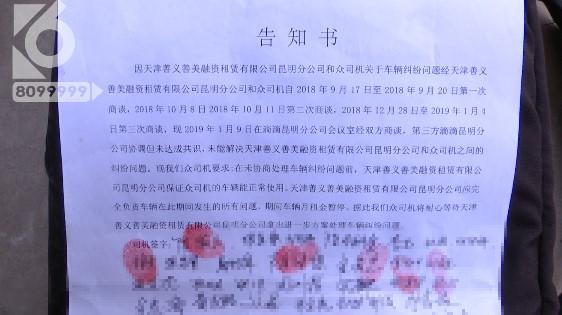 6
8099999
告知书
因天津善义善美融资租赁有限公司昆明分公司和众司机关于车辆纠纷问题经天津善义
善美融资租赁有限公司昆明分公司和众司机自 2018 年 9 月 17 日至 2018 年 9 月 20 日第一次
商谈，2018 年 10 月 8 日 2018 年 10 月 11 日第二次商谈，2018 年 12 月 28 日至 2019 年 1 月 4
日第三次商谈，现 2019 年 1 月 9 日在滴滴昆明分公司会议室经双方商谈，第三方滴滴昆明分
公司协调但未达成共识，未能解决天津善义善美融资租赁有限公司昆明分公司和众司机之间的
纠纷问题，现我们众司机要求:在未协商处理车辆纠纷问题前，天津善义善美融资租赁有限公
司昆明分公司保证众司机的车辆能正常使用。天津善义善美融资租赁有限公司昆明分公司应完
全负责车辆在此期间发生的所有问题，期间车辆月租金暂停。据此我们众司机将耐心等待天津
善义善美融资租赁有限公司昆明分公司拿出进一步方案处理车辆纠纷问题。
司机签字：